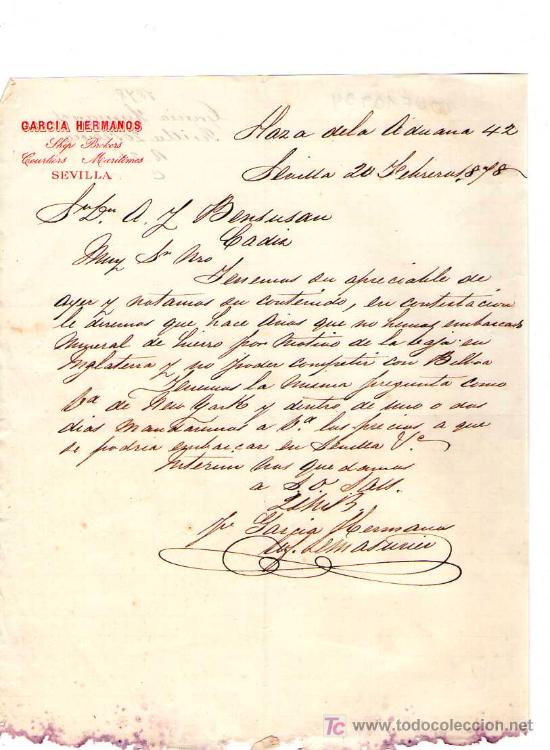 GARCIA HERMANOS
Ship Brokers
Courtiers Maritimes
SEVILLA
Plaza de la Aduana 42
Sevilla 20 Febrero 1878
Sr Dn A. J. Bensusan
Cadiz
Muy Sr Nro
Tenemos su apreciable de
ayer y notamos su contenido, en contestacion
le diremos que hace años que no hemos embarcado
mineral de hierro por motivo de la baja en
Inglaterra y no poder competir con Bilbao
Tenemos la misma pregunta como
Va de New York y dentro de uno o dos
dias mandaremos a Va los precios a que
se podria embarcar en Sevilla
Interim nos quedamos
a S. O.
Q B S M
Pr Garcia Hermanos
TC
www.todocoleccion.net